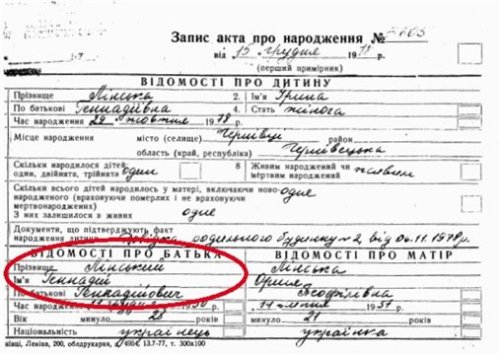 Запис акта про народження №
від 15 грудня 1978 р.
(перший примірник)
ВІДОМОСТІ ПРО ДИТИНУ
Прізвище Лінська 2. Ім'я Ірина
По батькові Геннадіївна 4. Стать жіноча
Час народження 29 жовтня 1978 р.
Місце народження місто (селище) Чернівці район
область (край, республіка) Чернівецька
Скільки народилося дітей: один, двійня, трійня один 8 Живим народжений чи мертвим народжений живим
Скільки всього дітей народилось у матері, включаючи новонародженого (враховуючи померлих і не враховуючи мертвонароджених) одне
З них залишилося в живих одне
Документи, що підтверджують факт народження дитини довідка родильного будинку №2, від 06.11.1978р.
ВІДОМОСТІ ПРО БАТЬКА ВІДОМОСТІ ПРО МАТІР
Прізвище Лінський Лінська
Ім'я Геннадій
По батькові Геннадійович Теофілівна
Час народження 1950 14 липня 1957
Вік минуло 28 років минуло 21 років
Національність українець українка
Леніна, 200, облдрукарня, 13.7-77, т. 300х100